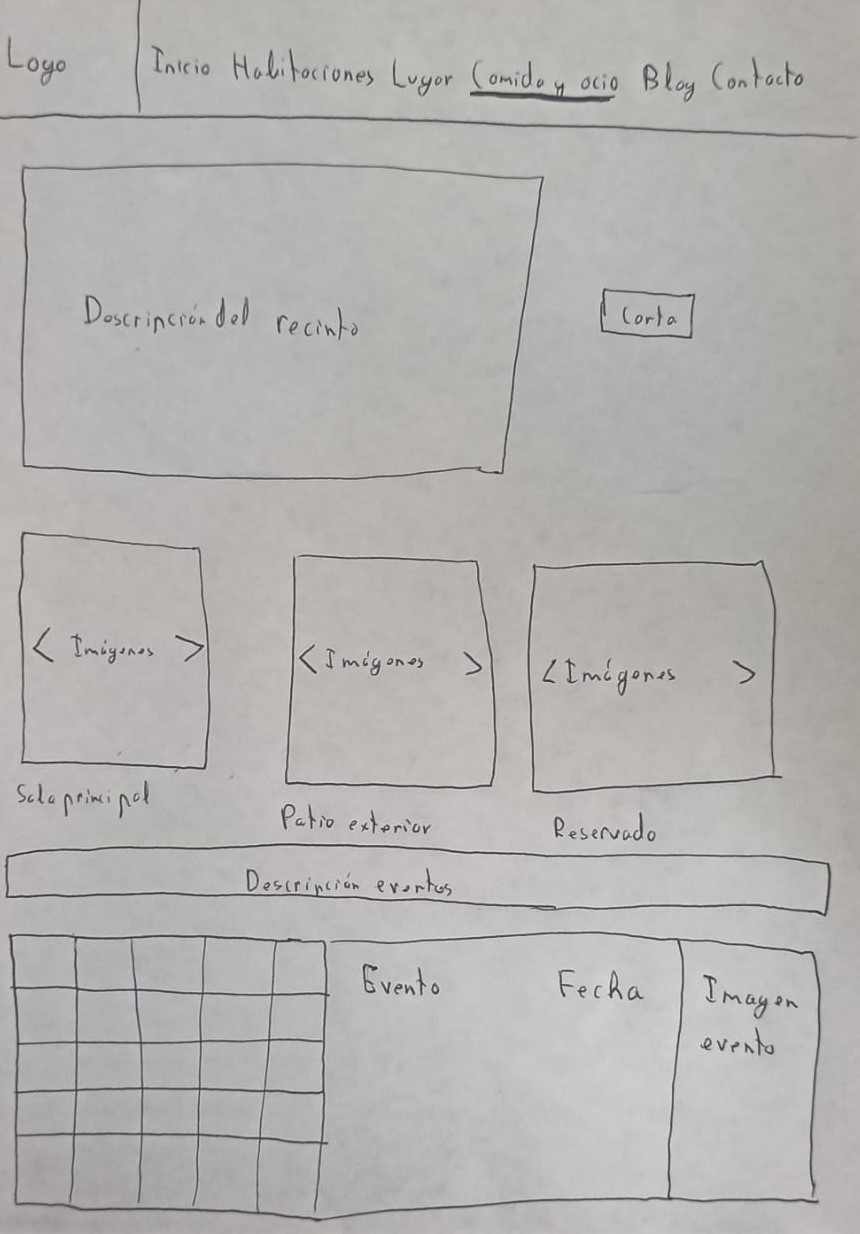 Logo
Inicio Habitaciones Lugar Comida y ocio Blog Contacto
Descripción del recinto
Carta
< Imágenes >
< Imágenes >
< Imágenes >
Sala principal
Patio exterior
Reservado
Descripción eventos
Evento
Fecha
Imagen
evento